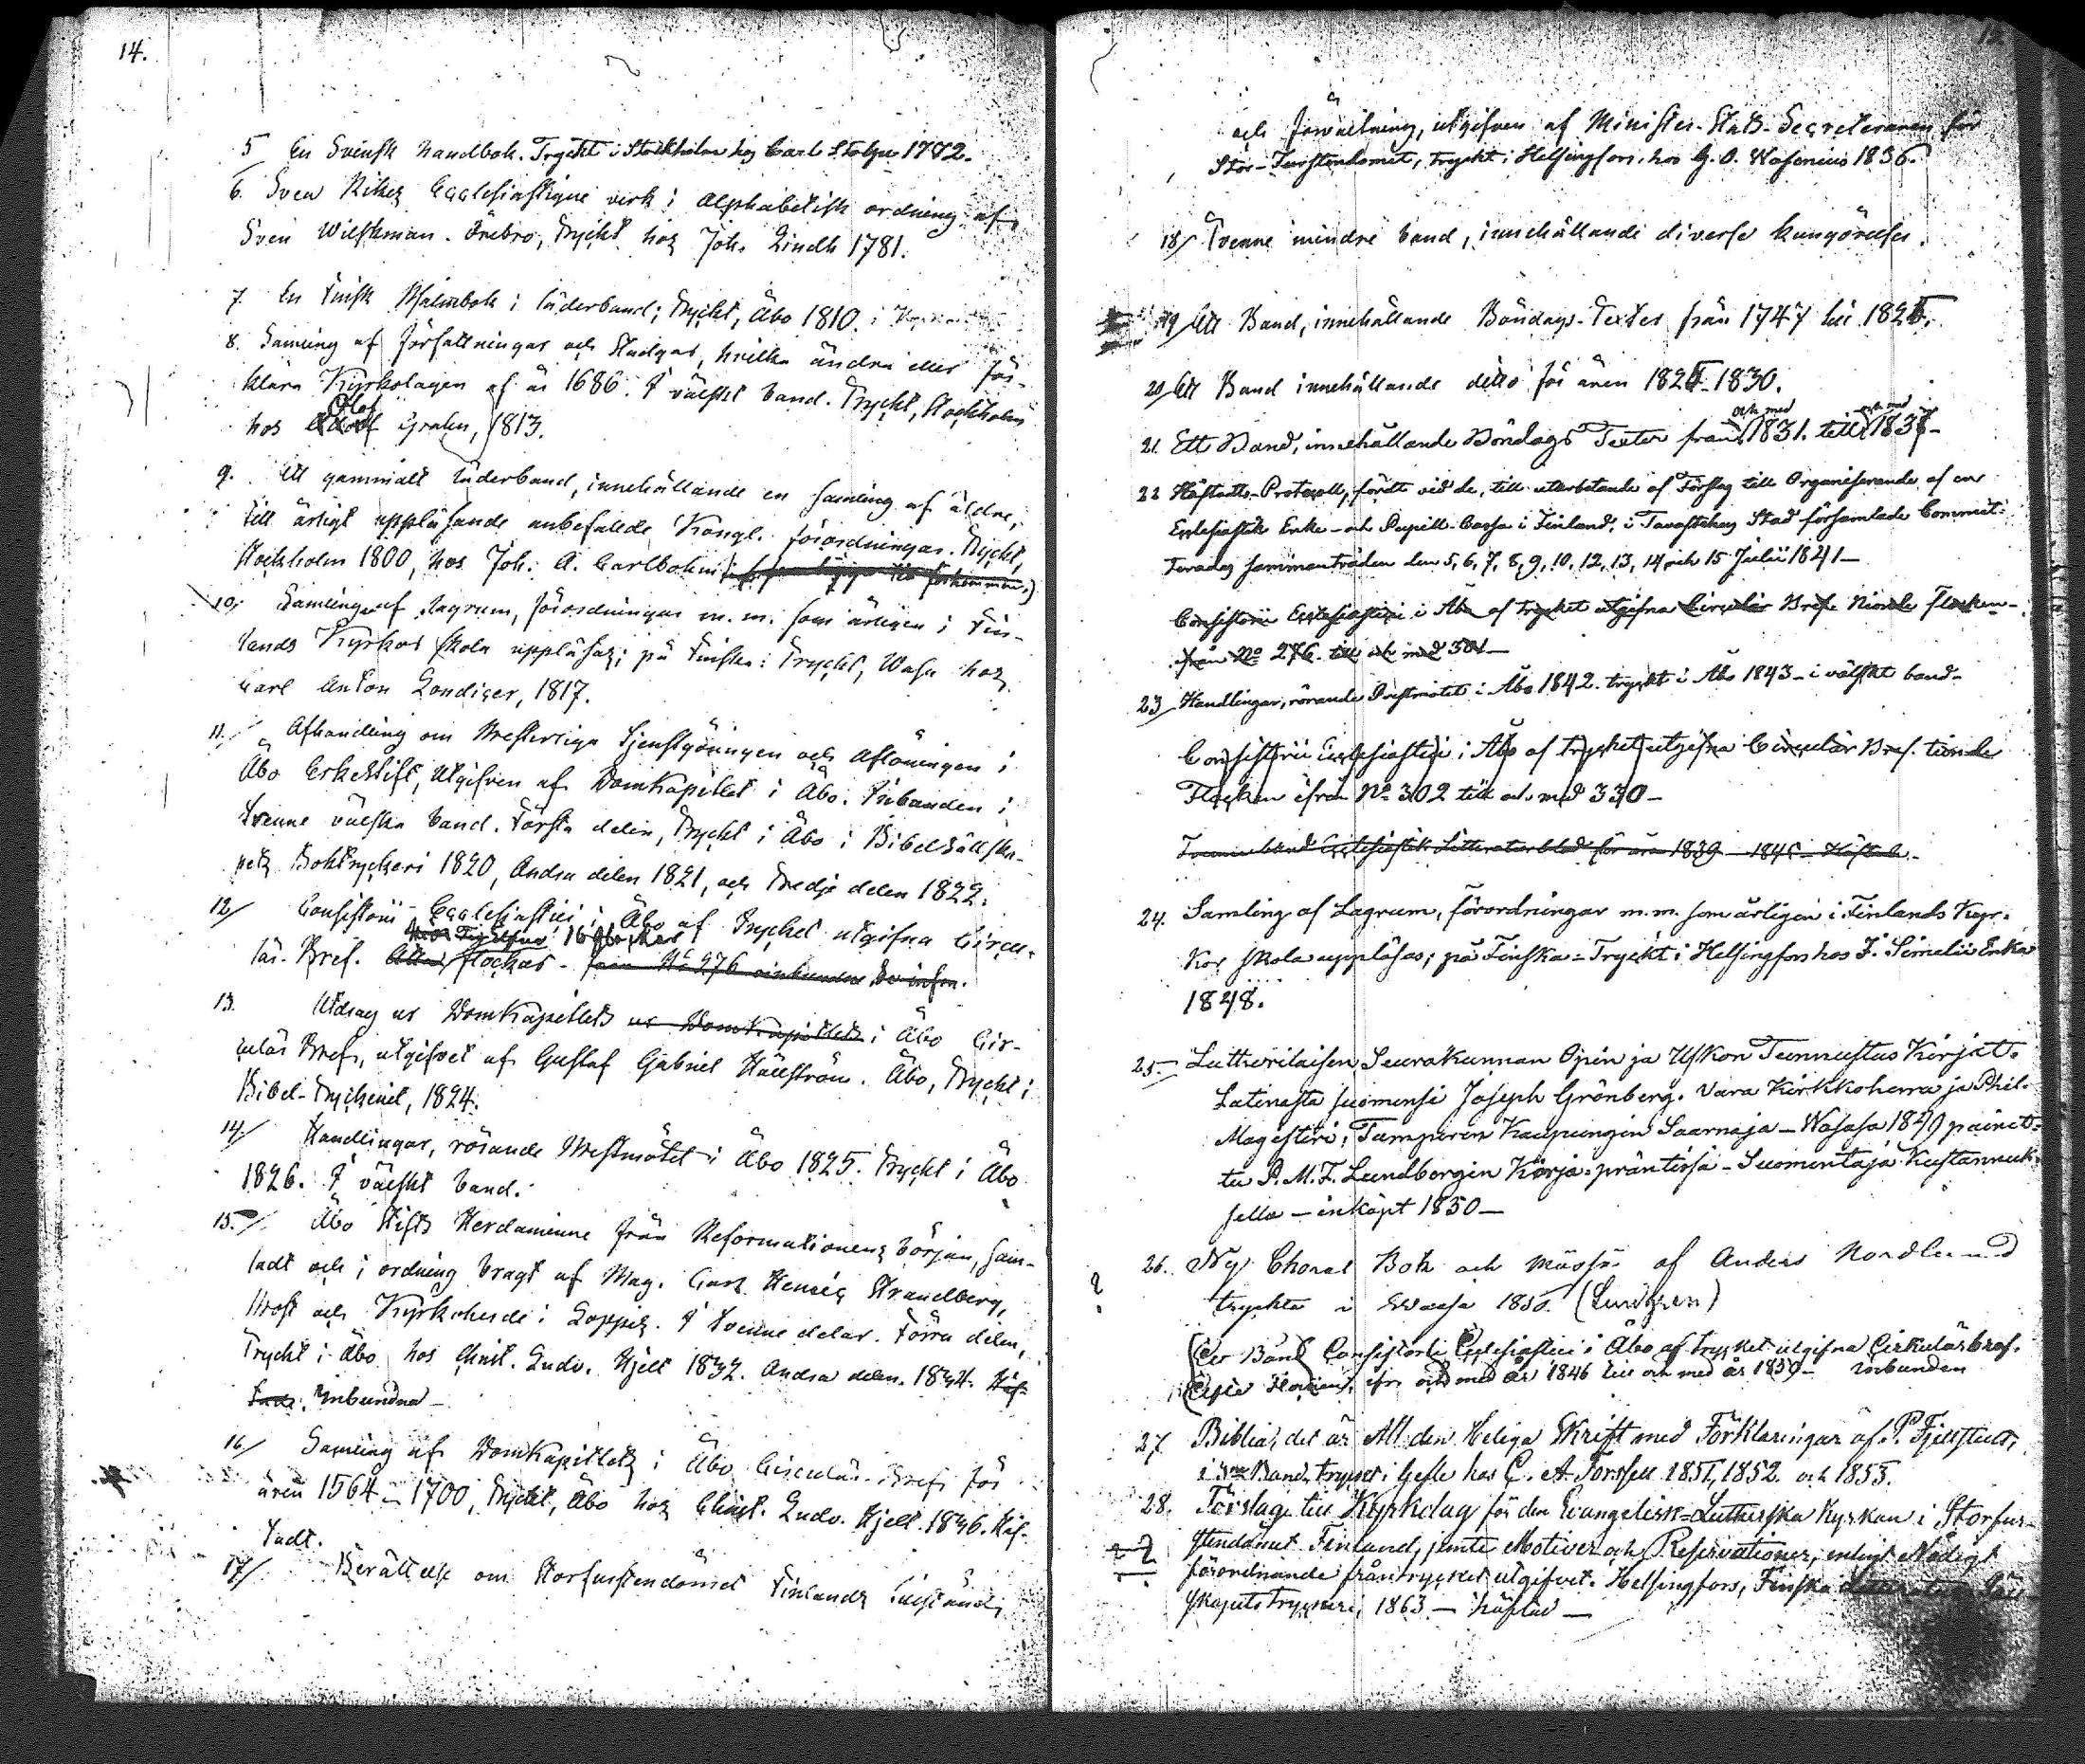 14.
5 En Svensk Handbok. Tryckt i Stockholm hos Carl Stolpe 1772.
6. Svea Rikes Ecclesiastique verk i Alphabetisk ordning af
Sven Wilskman. Örebro, Tryckt hos Joh. Lindh 1781.
7. En Finsk Psalmbok i läderband; Tryckt, Åbo 1810.
8. Samling af Författningar och Stadgar, hvilka ändra eller för-
klara Kyrkolagen af år 1686. I välskt band. Tryckt, Stockholm
hos Olof Grahn, 1813.
9. Ett gammalt läderband, innehållande en samling af äldre,
till årligt uppläsande anbefallde Kongl. förordningar. Tryckt,
Stockholm 1800, hos Joh. A. Carlbohm
10. Samling af Lagrum, förordningar m.m. som årligen i Fin-
lands Kyrkor skola uppläsas; på Finska: Tryckt, Wasa hos
Carl Anton Londicer, 1817.
11. Afhandling om Presterliga Tjenstgöringen och Aflöningen i
Åbo Erkestift, Utgifven af Domkapitlet i Åbo. Inbunden i
trenne välska band. Första delen, Tryckt i Åbo i Bibel Sällska-
pets Boktryckeri 1820, Andra delen 1821, och Tredje delen 1822.
12/ Consistorii Ecclesiastici i Åbo af Trycket utgifna Circu-
lär. Bref. flockar - från No 276 oinbundna
13. Utdrag ur Domkapitlets ur Domkapitlets i Åbo Cir-
culär Bref, utgifvet af Gustaf Gabriel Hällström. Åbo, Tryckt i
Bibel-Tryckeriet, 1824.
14/ Handlingar, rörande Prestmötet i Åbo 1825. Tryckt i Åbo
1826. I välskt band.
15/ Åbo Stifts Herdaminne från Reformationens början, sam-
ladt och i ordning bragt af Mag. Carl Henric Strandberg,
Prost och Kyrkoherde i Loppis. I tvenne delar. Förra delen,
Tryckt i Åbo hos Christ. Ludv. Hjelt 1832. Andra delen. 1834. Häf-
tade. Inbundna -
16/ Samling af Domkapitlets i Åbo Circulär-Bref för
åren 1564 - 1700, Tryckt, Åbo hos Christ. Ludv. Hjelt. 1836. Häf-
tadt.
17/ Berättelse om Storfurstendömet Finlands Tillstånd,
och förvaltning, utgifven af Minister-Stats-Secreteraren för
Stor-Furstendömet, tryckt i Helsingfors, hos G. O. Wasenius 1836.
18/ Tvenne mindre band, innehållande diverse kungörelser.
19/ Ett Band, innehållande Böndags-Texter från 1747 till 1825.
20/ Ett Band innehållande ditto för åren 1825-1830.
och med och med
21. Ett Band, innehållande Böndags Texter från 1831. till 1837-
22 Häftadt-Protocoll, fördt vid de, till utarbetande af Förslag till Organiserande af en
Ecclesiastik Enke- och Pupill-Cassa i Finland, i Tavastehus Stad församlade Commit-
terades sammanträden den 5, 6, 7, 8, 9, 10, 12, 13, 14 och 15 Julii 1841-
Consistorii Ecclesiastici i Åbo af trycket utgifna Circulär Bref. Nionde Flocken-
från No 276. till och med 301-
23/ Handlingar, rörande Prestmötet i Åbo 1842. tryckt i Åbo 1843- i välskt band-
Consistorii Ecclesiastici i Åbo af trycket utgifna Circulär Bref. tionde
Flocken ifrån No 302 till och med 330-
Ecclesiastik Litteraturblad för åren 1839 - 1845 - Häftade.
24. Samling af Lagrum, förordningar m.m. som årligen i Finlands Kyr-
kor skola uppläsas; på Finska- Tryckt i Helsingfors hos J. Simelii Enka
1848.
25- Lutherilaisen Seurakunnan Opin ja Uskon Tunnustus Kirjat.
Latinasta suomensi Joseph Grönberg. Vara Kirkkoherra ja Phil.
Magisteri, Tampereen Kaupungin Saarnaja - Wasasa 1849 painet-
tu P. M. J. Lundbergin Kirja-präntissä - Suomentaja Kustannuk-
sella - inköpt 1850-
26. Ny Choral Bok och mässa af Anders Nordlund
tryckta i Wasa 1850. (Lundgren)
?
Ett Band Consistorii Ecclesiastici i Åbo af trycket utgifna Cirkulärbref.
ifrån och med år 1846 till och med år 1859- inbunden
27. Biblia, det är All den Heliga Skrift med Förklaringar af P. Fjellstedt,
i 3ne Band, tryckt i Gefle hos C. A. Forssell 1851, 1852. och 1855.
28. Förslag till Kyrkolag för den Evangelisk-Lutherska Kyrkan i Storfur-
stendömet Finland, jemte Motiver och Reservationer, enligt Nådigt
förordnande från trycket utgifvet. Helsingfors, Finska Litteratur Säll
skapets tryckeri, 1863 - häftad -